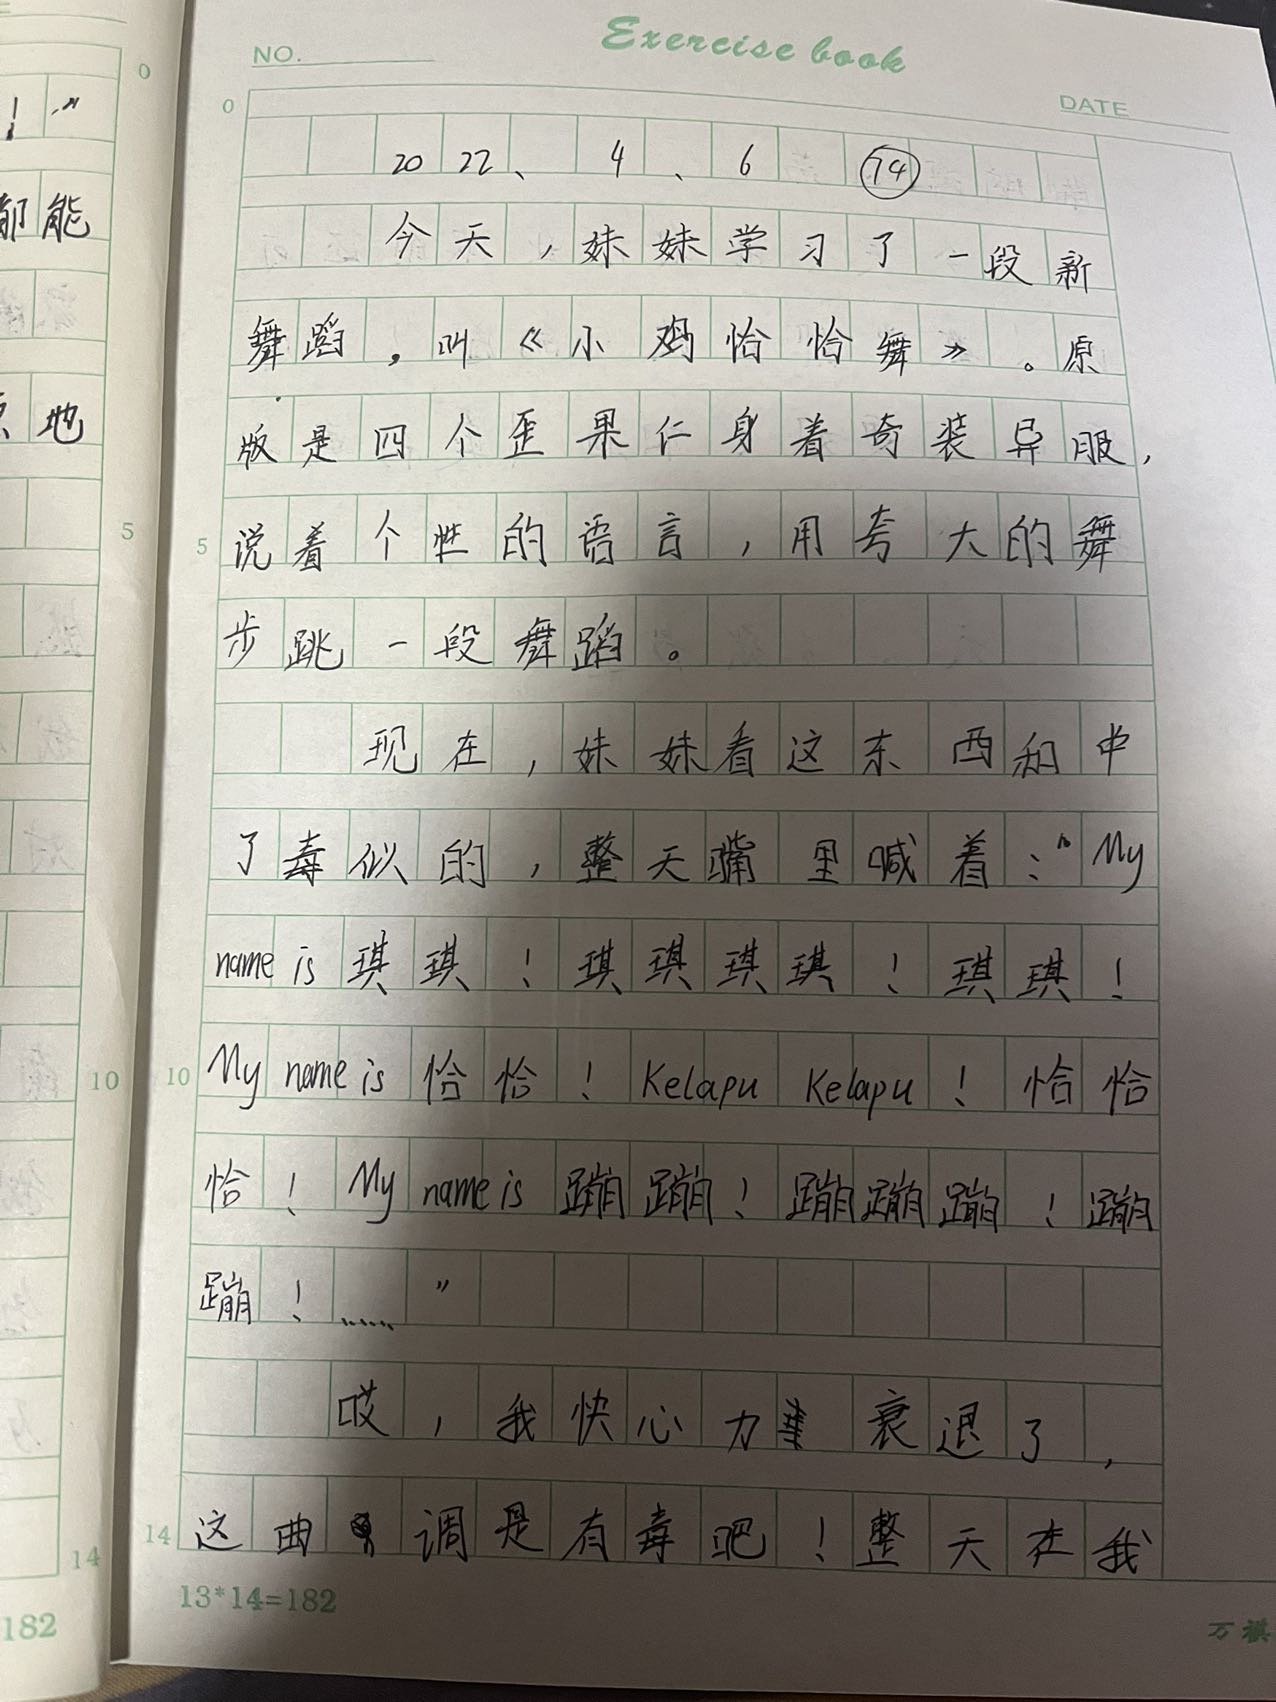 Exercise book
NO.
DATE
！”
都能
地
5
10
14
182
0
2022、4、6 74
今天，妹妹学习了一段新
舞蹈，叫《小鸡恰恰舞》。原
版是四个歪果仁身着奇装异服，
说着个性的语言，用夸大的舞
步跳一段舞蹈。
现在，妹妹看这东西和中
了毒似的，整天嘴里喊着：“My
name is 琪琪！琪琪琪琪！琪琪！
My name is 恰恰！Kelapu Kelapu！恰恰
恰！My name is 蹦蹦！蹦蹦蹦！蹦
蹦！……”
哎，我快心力衰退了，
这曲调是有毒吧！整天在我
0
5
10
14
13*14=182
万祺